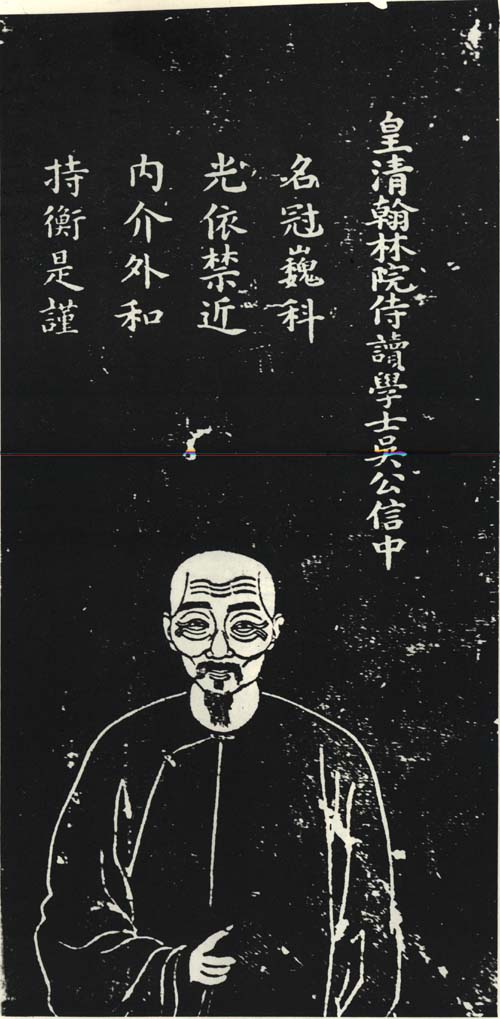 皇清翰林院侍讀學士吳公信中
名冠巍科
光依禁近
内介外和
持衡是謹